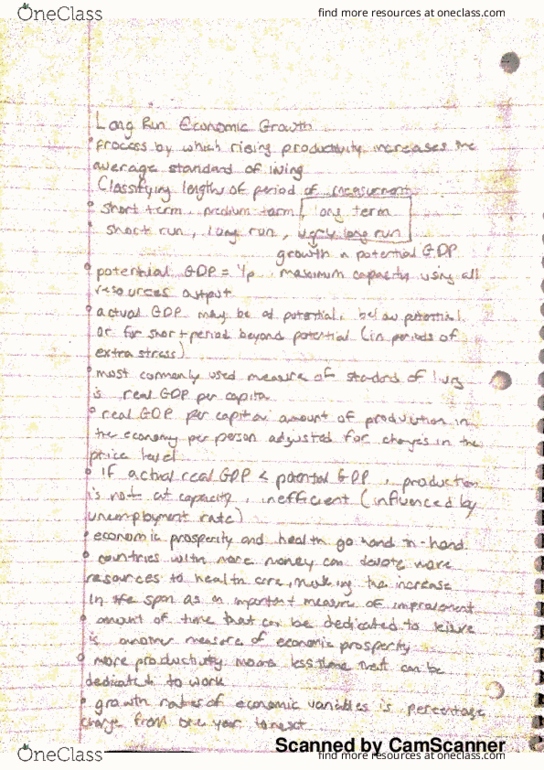 OneClass
find more resources at oneclass.com
Long Run Economic Growth
• process by which rising productivity increases the
average standard of living
Classifying lengths of period of measurement
• short term, medium term, long term
• short run, long run, very long run
growth in potential GDP
• potential GDP = Yp maximum capacity using all
resources output
• actual GDP may be at potential, below potential,
or for short period beyond potential (in periods of
extra stress)
• most commonly used measure of standard of living
is real GDP per capita
• real GDP per capita: amount of production in
the economy per person adjusted for changes in the
price level
• if actual real GDP < potential GDP, production
is not at capacity, inefficient (influenced by
unemployment rate)
• economic prosperity and health go hand-in-hand
• countries with more money can devote more
resources to health care, making the increase
in life span as an important measure of improvement
• amount of time that can be dedicated to leisure
is another measure of economic prosperity
• more productivity means less time that can be
dedicated to work
• growth rates of economic variables is percentage
change from one year to next
Scanned by CamScanner
OneClass
find more resources at oneclass.com